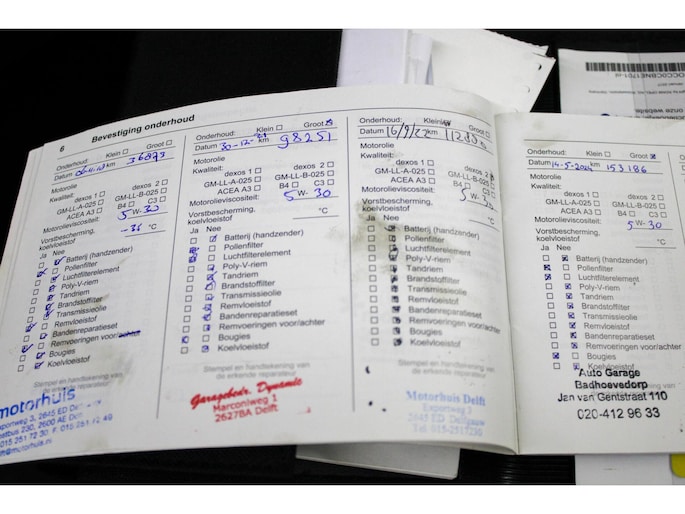 6 Bevestiging onderhoud
Onderhoud: Klein Groot
Datum km 36873
Motorolie
Kwaliteit:
dexos 1 dexos 2
GM-LL-A-025 GM-LL-B-025
ACEA A3 B4 C3
Motorolieviscositeit: 5 W- 30
Vorstbescherming, koelvloeistof -36 °C
Ja Nee
Batterij (handzender)
Pollenfilter
Luchtfilterelement
Poly-V-riem
Tandriem
Brandstoffilter
Transmissieolie
Remvloeistof
Bandenreparatieset
Remvoeringen voor/achter
Bougies
Koelvloeistof
Stempel en handtekening van
de erkende reparateur
motorhuis
2645 ED
230, 2600 AE
015 251 72 30
Onderhoud: Klein Groot
Datum 30-12- km 98251
Motorolie
Kwaliteit:
dexos 1 dexos 2
GM-LL-A-025 GM-LL-B-025
ACEA A3 B4 C3
Motorolieviscositeit: 5 W- 30
Vorstbescherming,
koelvloeistof °C
Ja Nee
Batterij (handzender)
Pollenfilter
Luchtfilterelement
Poly-V-riem
Tandriem
Brandstoffilter
Transmissieolie
Remvloeistof
Bandenreparatieset
Remvoeringen voor/achter
Bougies
Koelvloeistof
Stempel en handtekening van
de erkende reparateur
Garagebedr. Dynamic
Marconiweg 1
2627BA Delft
Onderhoud: Klein Groot
Datum 16/9/22 km
Motorolie
Kwaliteit:
dexos 1 dexos 2
GM-LL-A-025 GM-LL-B-025
ACEA A3 B4 C3
Motorolieviscositeit: 5 W- 30
Vorstbescherming,
koelvloeistof °C
Ja Nee
Batterij (handzender)
Pollenfilter
Luchtfilterelement
Poly-V-riem
Tandriem
Brandstoffilter
Transmissieolie
Remvloeistof
Bandenreparatieset
Remvoeringen voor/achter
Bougies
Koelvloeistof
Stempel en handtekening van
de erkende reparateur
Motorhuis Delft
Exportweg 3
2645 ED Delfgauw
Tel. 015-2517230
Onderhoud: Klein Groot
Datum 14-5-2024 km 153186
Motorolie
Kwaliteit:
dexos 1 dexos 2
GM-LL-A-025 GM-LL-B-025
ACEA A3 B4 C3
Motorolieviscositeit: 5 W- 30
Vorstbescherming,
koelvloeistof °C
Ja Nee
Batterij (handzender)
Pollenfilter
Luchtfilterelement
Poly-V-riem
Tandriem
Brandstoffilter
Transmissieolie
Remvloeistof
Bandenreparatieset
Remvoeringen voor/achter
Bougies
Koelvloeistof
Auto Garage
Badhoevedorp
Jan van Gentstraat 110
020-412 96 33
onze website